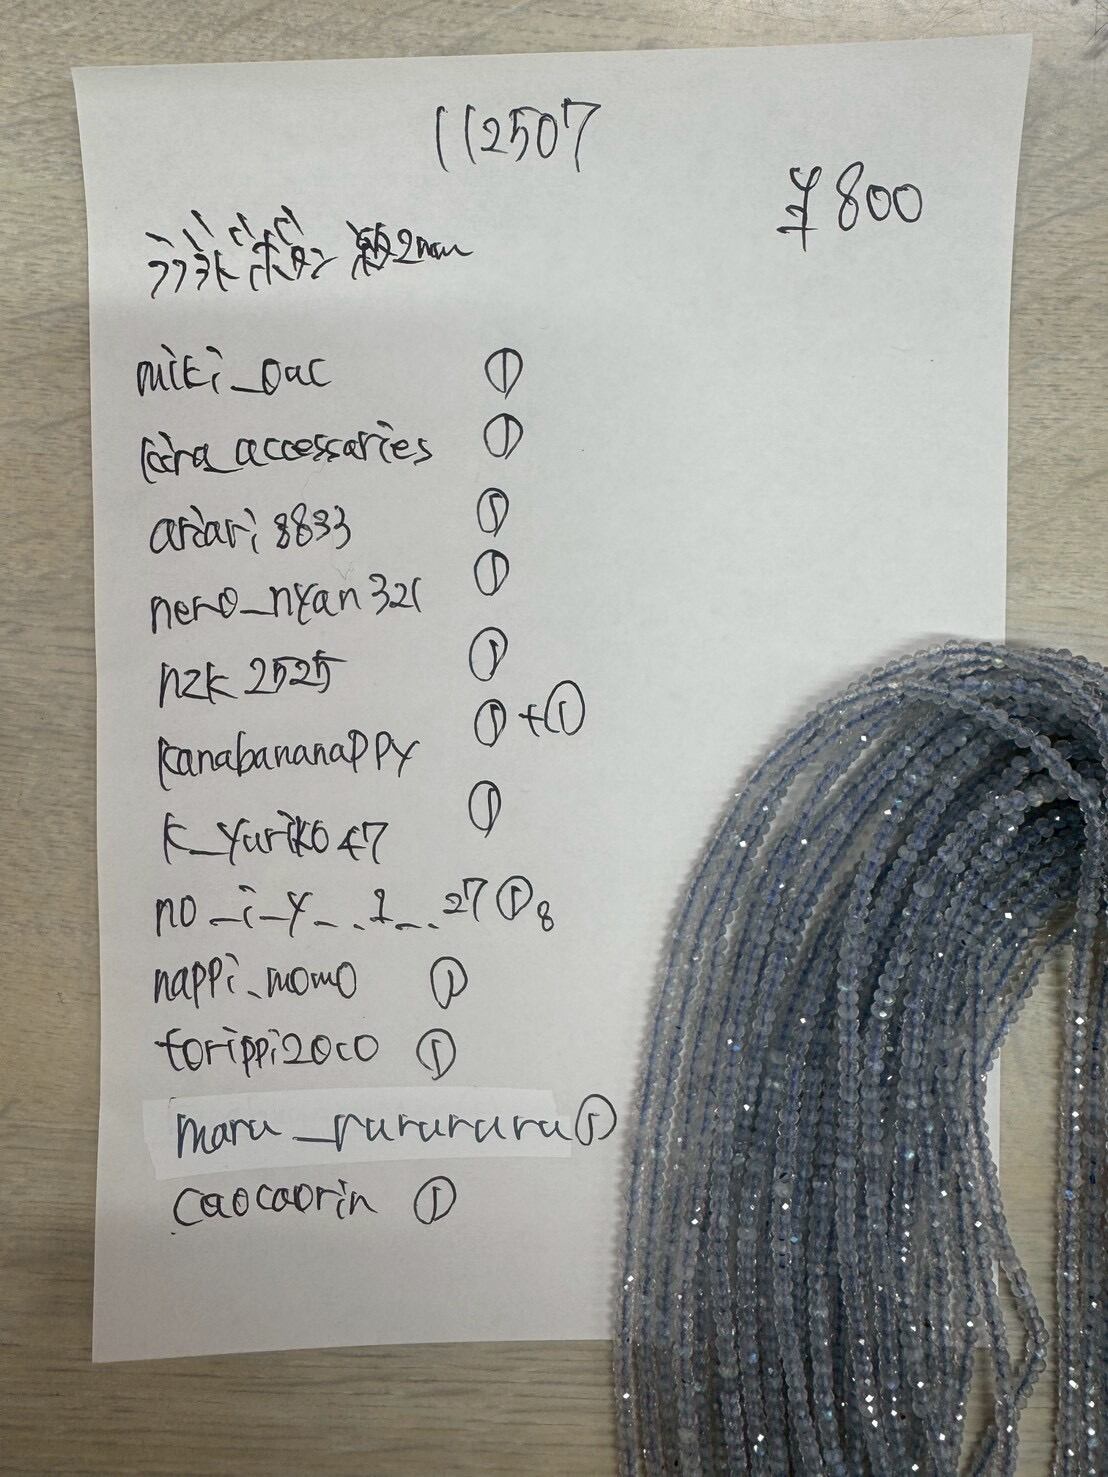 112507
¥800
2mm
miki_oac ①
kira_accessaries ①
ariari8833 ①
nero_nyan321 ①
nzk2525 ①
kanabananappy ①+①
k_yuriko47 ①
no_i_y_._1_..27 ① 8
nappi_momo ①
torippi2oco ①
maru_rurururu ①
caocaorin ①